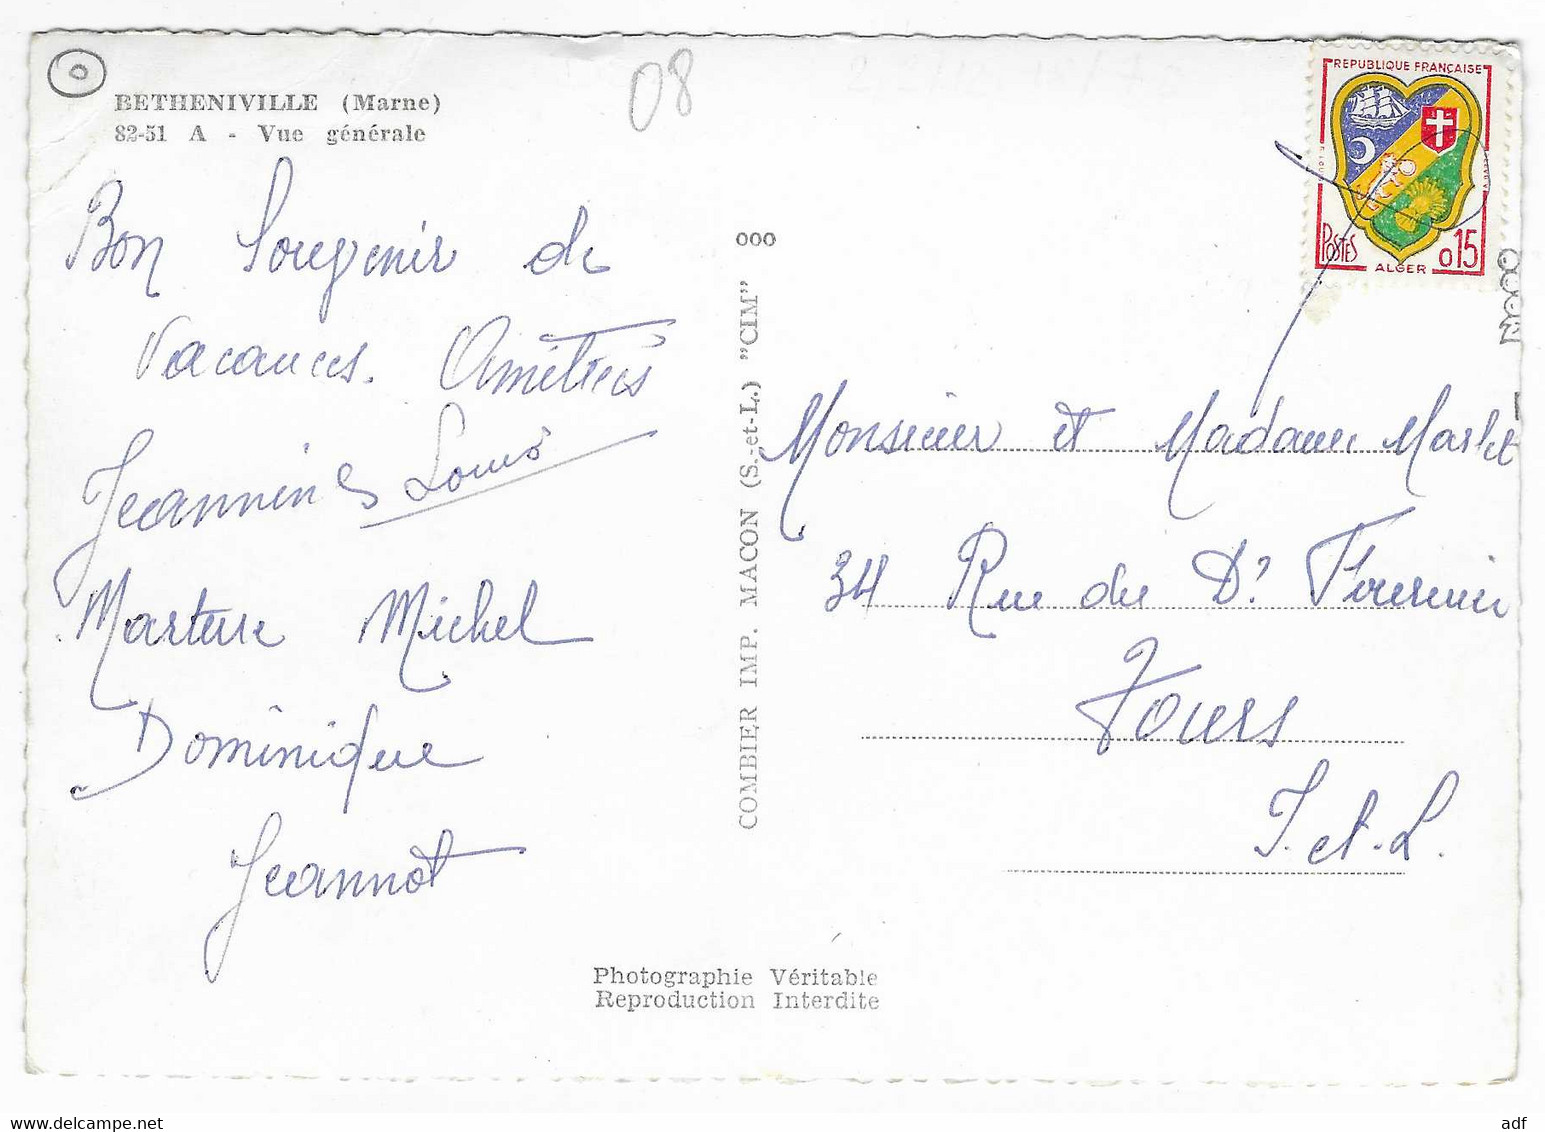 08
BETHENIVILLE (Marne)
82-51 A - Vue générale
Bon Souvenir de
Vacances. Amitiés
Jeannine Louis
Michel
Dominique
Jeannot
000
COMBIER IMP. MACON (S.-et-L.) "CIM"
REPUBLIQUE FRANÇAISE
POSTES
ALGER
0,15
Monsieur et Madame
34 Rue du Dr Fournier
Tours
I. et. L.
Photographie Véritable
Reproduction Interdite
adf